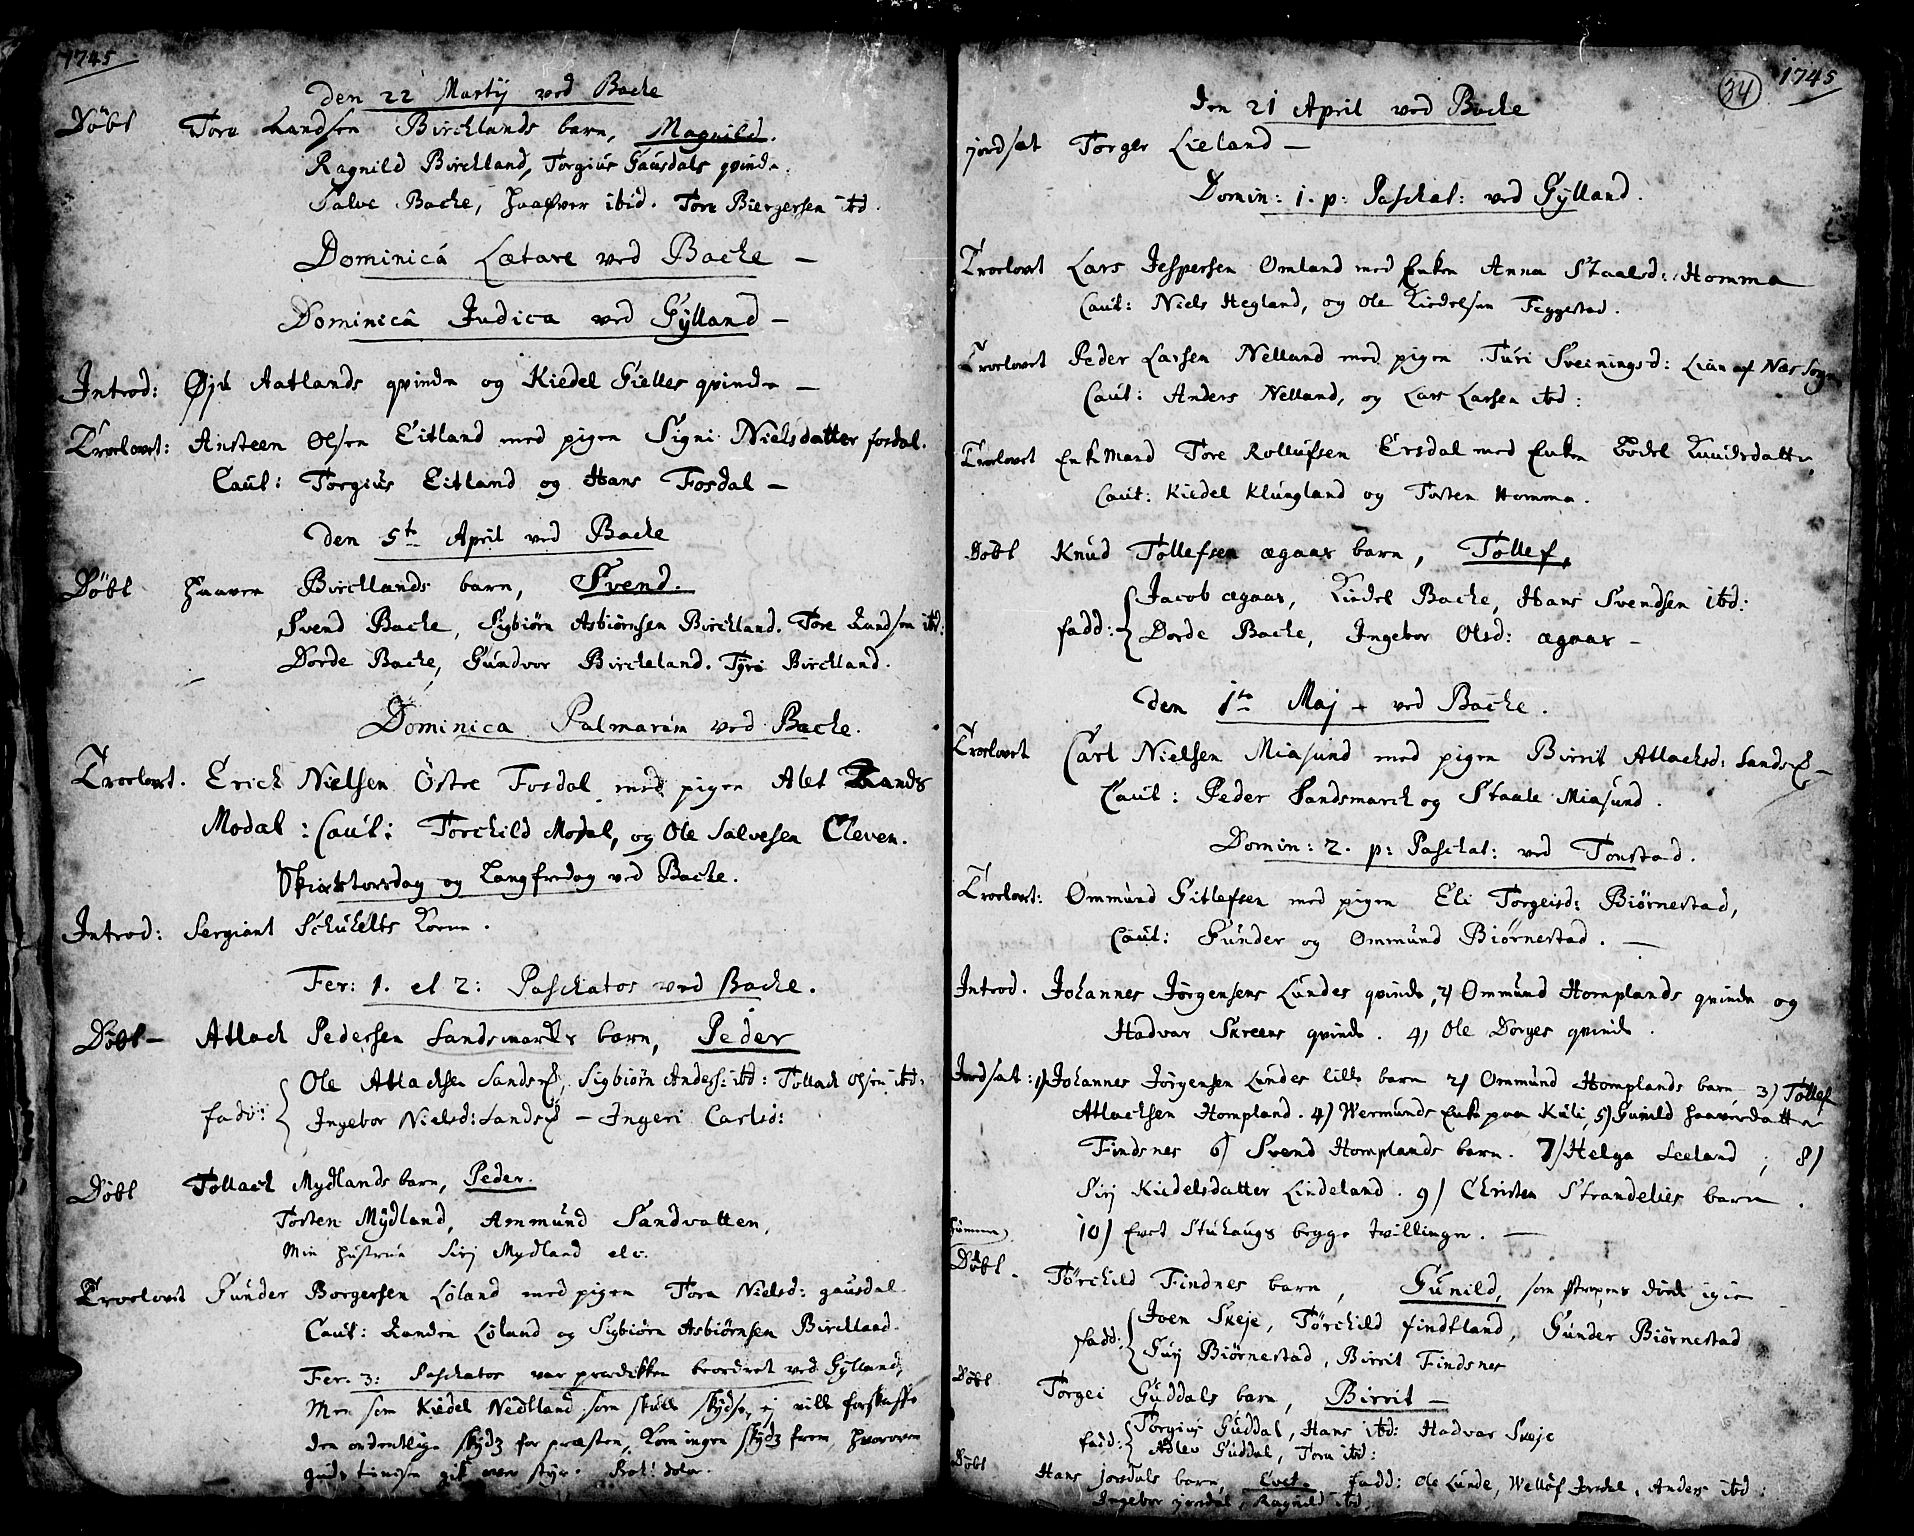 1745
Den 22 Martij ved Backe
Döbt Tore Randsen Birchlands barn, Magnild.
Ragnild Birchland, Torgius Gausdals qvinde.
Salve Backe, Haaver ibid. Tore Biergersen ibd.
Dominicâ Lætare ved Backe —
Dominicâ Judica ved Gylland —
Introd: Øju Aatlands qvinde og Kiedel Fielles qvinde —
Troelovet: Ansteen Olsen Eitland med pigen Signi Nielsdatter fosdal.
Caut: Torgius Eitland og Hans Fosdal —
Den 5te April ved Backe
Döbt Haaven Birchlands barn, Svend.
Svend Backe, Sigbiörn Asbiörnsen Birchland. Tore Randsen ibd:
Dorde Backe, Gundvor Bircheland. Tyri Birchland.
Dominica Palmarum ved Backe.
Troelovt. Erich Nielsen Östre Fosdal med pigen Alet Rands
Modal: Caut: Torchild Modal, og Ole Salvesen Cleven.
Skiertorsdag og Langfredag ved Backe.
Introd: Sergiant Schuhelts Kone.
Fer: 1. et 2: Paschatos ved Backe.
Döbt — Atlack Pedersen Landsmarks barn, Peder
fadd: Ole Atlachsen Sands, Sigbiörn Anders: ibd: Tollack Olsen ibd.
Ingebor Nielsd: Sands — Ingeri Carlsd:
Döbt Tollack Mydlands barn, Peder.
Torsten Mydland, Ammund Sandvatten,
Min Hustrue Sirj Mydland etc.
Troelovit Gunder Borgersen Löland med pigen Tora Nielsd: gausdal.
Caut: Randen Löland og Sigbiörn Asbiörnsen Birchland.
Fer. 3: Paschatos var prædikken beordret ved Gylland,
Men som Kiedel Nedland som skulle skydse, ej ville forskaffe
den ordentlige skydz for præsten, kom ingen skydz frem, hvorover
guds tieniste gik over styr.
34 1745
Den 21 April ved Backe
jordsat Torger Lieland —
Domin: 1. p: Paschat: ved Gylland.
Troelovet Lars Jespersen Omland med Enken Anna Staalsd: Homma
Caut: Niels Hegland, og Ole Kiedelsen Feggestad.
Troelovet Peder Larsen Nelland med pigen Turi Sveiningsd: Lian af Nes Sogn
Caut: Anders Nelland, og Lars Larsen ibd:
Troelovet Enkemand Tore Rollufsen Ersdal med Enken Bodel Knudsdatter,
Caut: Kiedel Klungland og Torsten Homma.
Döbt Knud Tollefsen ægaas barn, Tollef,
fadd: Jacob ægaas, Kiedel Backe, Hans Svendsen ibd:
Dorde Backe, Ingebor Olsd: ægaas —
Den 1te Maj ved Backe.
Troelovet Carl Nielsen Miasund med pigen Birrit Atlachsd: Sands —
Caut: Peder Sandsmarck og Staale Miasund.
Domin: 2. p: Paschat: ved Tonstad.
Troelovt: Ommund Gitlefsen med pigen Eli Torgeisd: Biörnestad,
Caut: Gunder og Ommund Biörnestad. —
Introd. Johannes Jörgensens Lundes qvinde, 2) Ommund Homplands qvinde og
Hadvar Skreens qvinde. 4) Ole Dorges qvinde.
Jordsat: 1) Johannes Jörgensen Lundes lille barn 2) Ommund Homplands barn 3) Tollef
Atlachsen Hompland. 4) Wermunds Enke paa Kuli, 5) Gunild Haaversdatter
Findsnes 6) Svend Homplands barn. 7) Helga Leeland; 8)
Sirj Kiedelsdatter Lindeland. 9) Christen Strandelies barn.
10) Evet Stuhaugs begge tvillinger. —
Döbt. Törchild Findnes barn, Gunild, som strax döde igien
Fadd: Joen Skeje, Törchild findtland, Gunder Biörnestad
Gurj Biörnestad, Birrit Findsnes
Döbt Torgei Guddals barn, Birrit —
fadd: Torgius Guddal, Hans ibd: Hadvar Skeje
Adlev Guddal, Tora ibd:
Döbt Hans josdals barn, Evet. fadd: Ole Lunde, Wellöf Josdal, Anders ibd:
Ingebor josdal, Ragnild ibd.